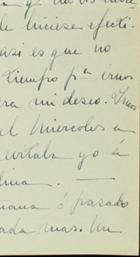 se hiciese efecti-
así es que no
tiempo pa irnos
era mi deseo.
el Miércoles a
evitala yo á
lina. —
ana ó pasado
ada mas. Un